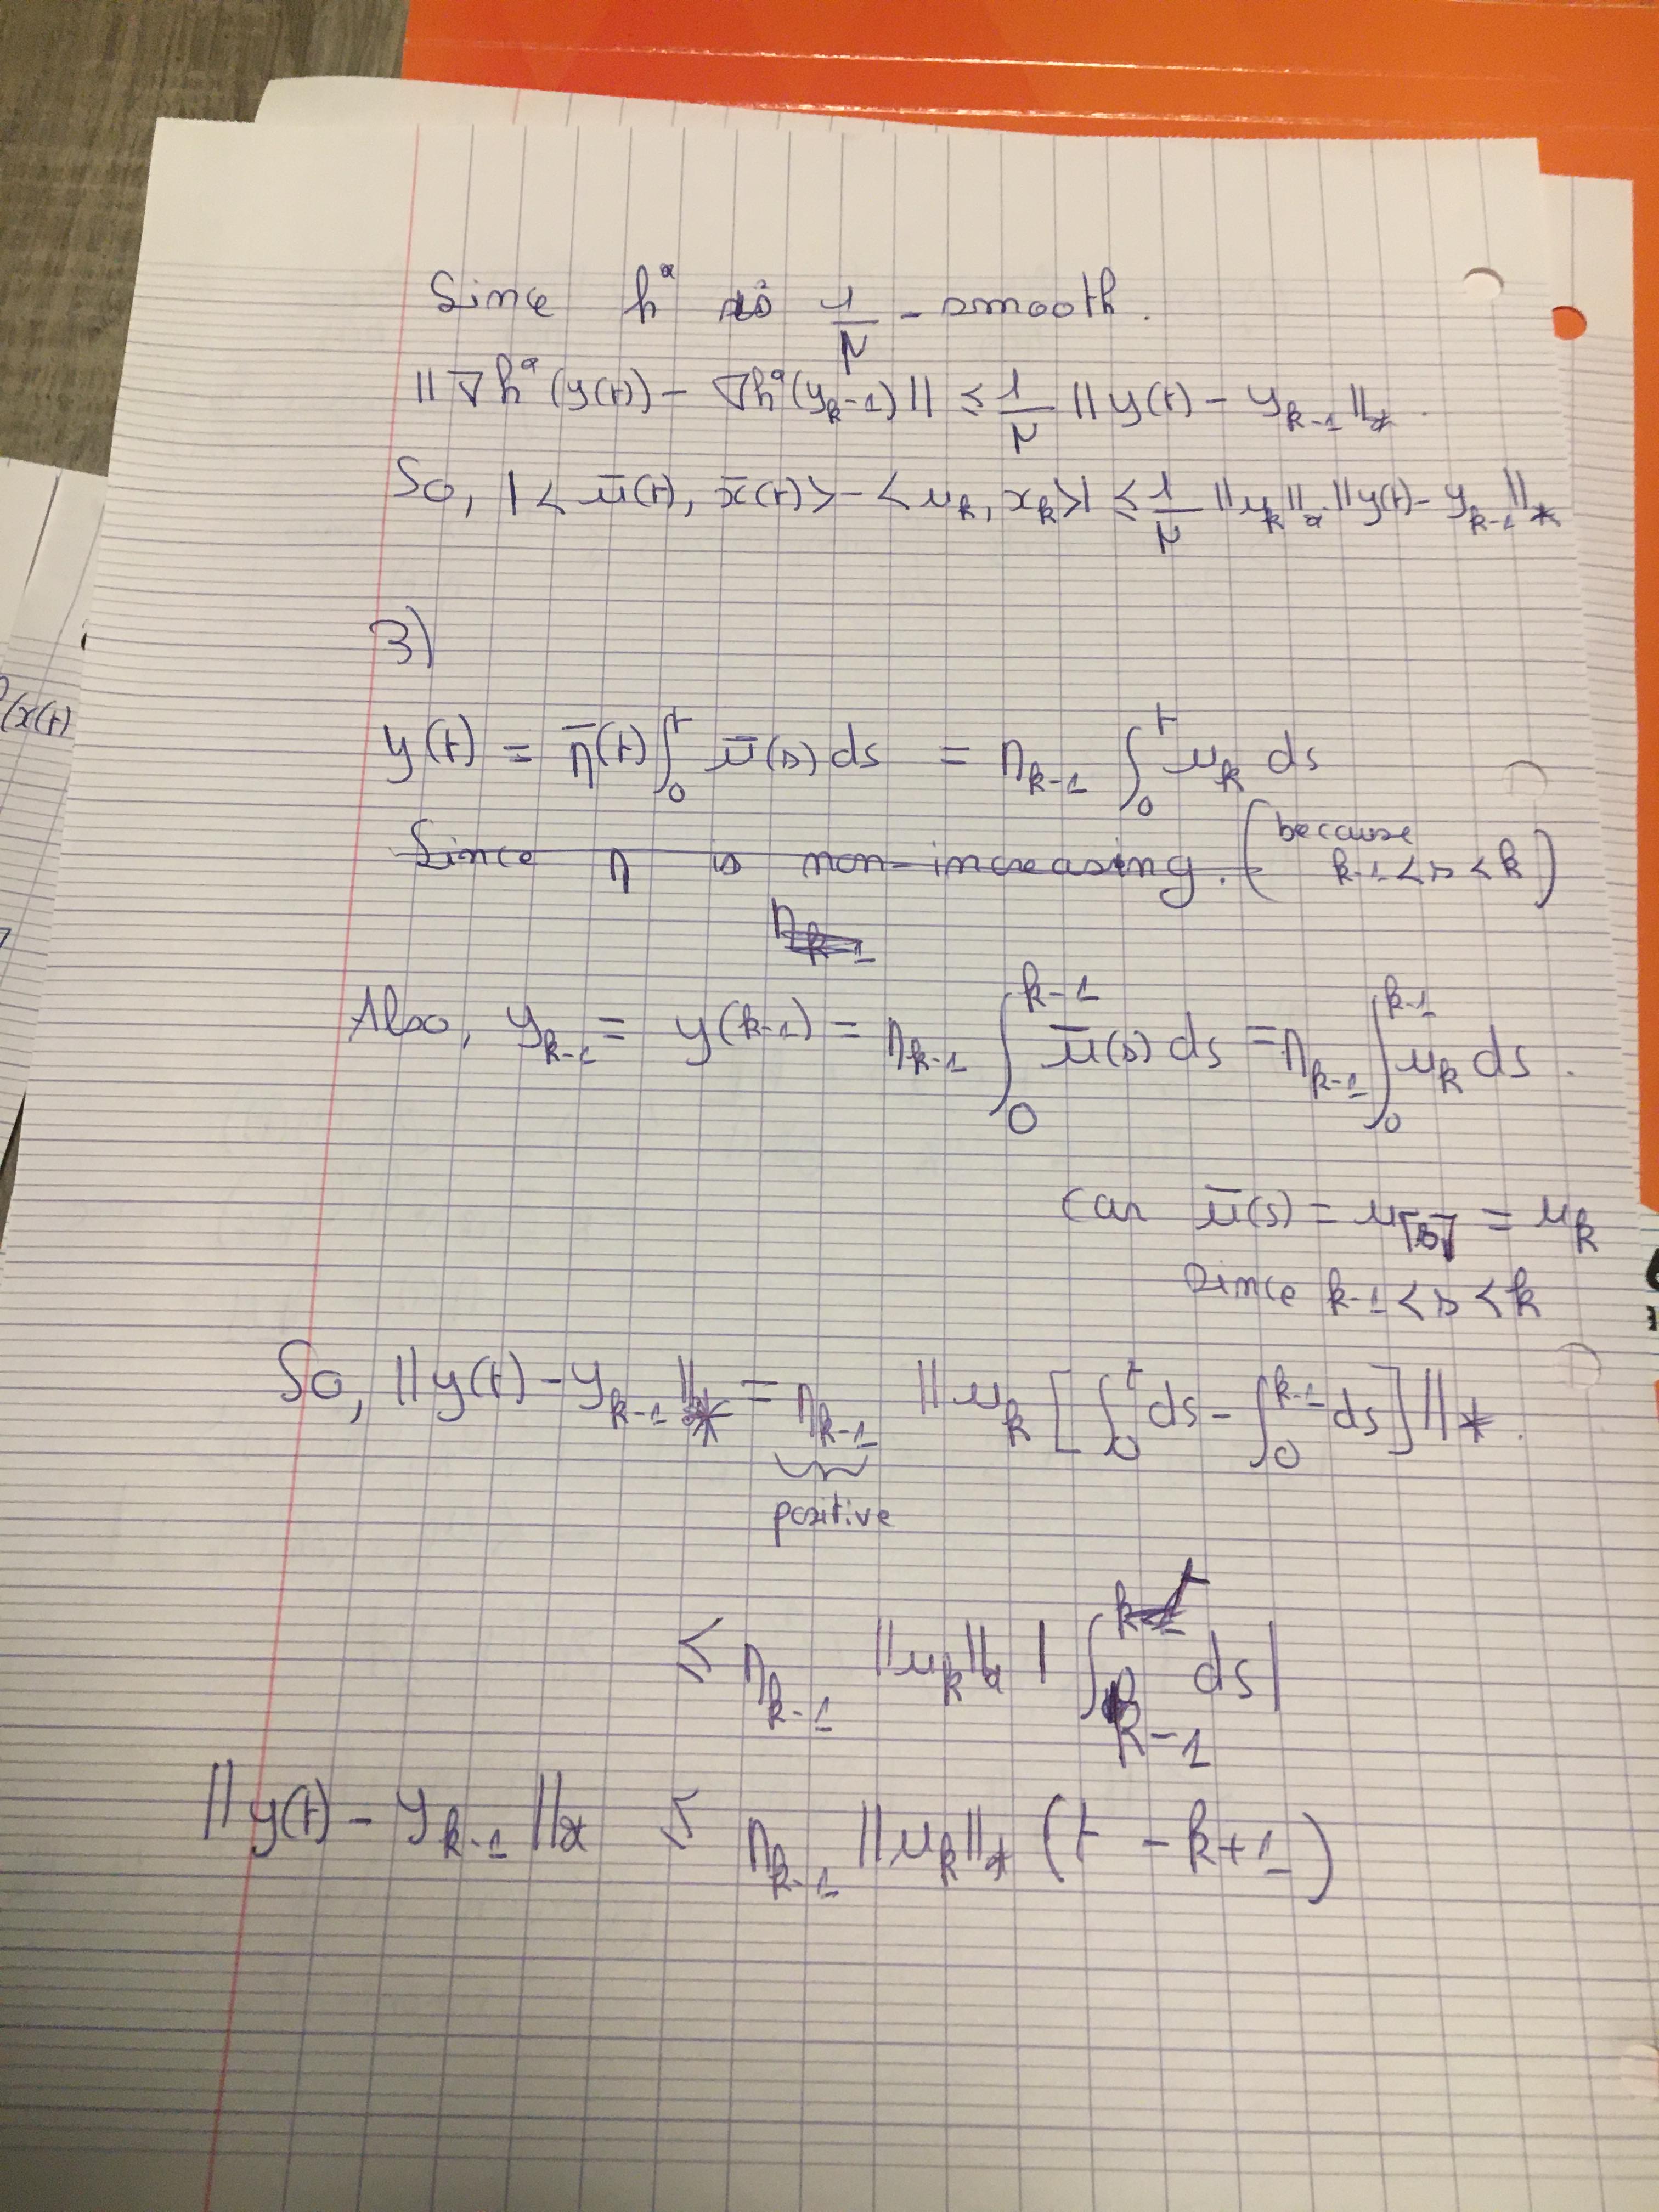 Since h* is 1/μ - smooth.
|| ∇h*(y(t)) - ∇h*(y_{k-1}) || ≤ 1/μ || y(t) - y_{k-1} ||_* .
So, | < ū(t), x̄(t) > - < u_k, x_k > | ≤ 1/μ || u_k ||_* . || y(t) - y_{k-1} ||_*
3)
(x(t)
y(t) = η̄(t) ∫_0^t ū(s) ds = η_{k-1} ∫_0^t u_k ds
Since η is non-increasing. (because k-1 < s < k)
η_{k-1}
Also, y_{k-1} = y(k-1) = η_{k-1} ∫_0^{k-1} ū(s) ds = η_{k-1} ∫_0^{k-1} u_k ds .
car ū(s) = u_{⌈s⌉} = u_k
since k-1 < s < k
So, || y(t) - y_{k-1} ||_* = η_{k-1} || u_k [ ∫_0^t ds - ∫_0^{k-1} ds ] ||_* .
positive
≤ η_{k-1} || u_k ||_* | ∫_{k-1}^t ds |
|| y(t) - y_{k-1} ||_* ≤ η_{k-1} || u_k ||_* (t - k+1)